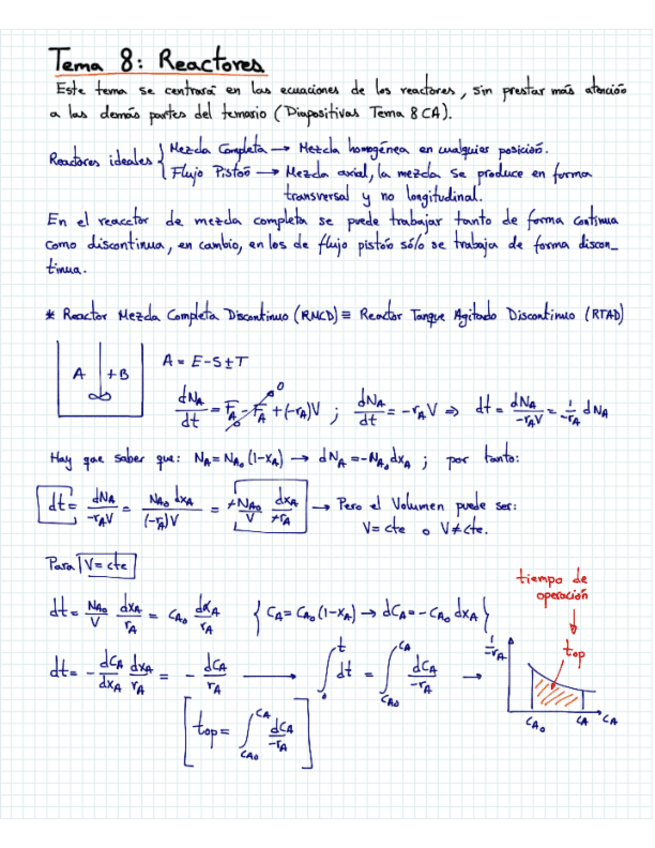 Tema 8: Reactores
Este tema se centrará en las ecuaciones de los reactores, sin prestar más atención
a las demás partes del temario (Diapositivas Tema 8 CA).
Reactores ideales { Mezcla Completa → Mezcla homogénea en cualquier posición.
Flujo Pistón → Mezcla axial, la mezcla se produce en forma
transversal y no longitudinal.
En el reacctor de mezcla completa se puede trabajar tanto de forma continua
como discontinua, en cambio, en los de flujo pistón sólo se trabaja de forma discon_
tinua.
* Reactor Mezcla Completa Discontinuo (RMCD) ≡ Reactor Tanque Agitado Discontinuo (RTAD)
A +B
A = E-S±T
dNA/dt = FA - FA + (-rA)V ; dNA/dt = -rAV ⇒ dt = dNA/-rAV = 1/-rA dNA
0
Hay que saber que: NA = NA₀ (1-XA) → dNA = -NA₀ dXA ; por tanto:
dt = dNA/-rAV = NA₀ dXA/(-rA)V = +NA₀/V dXA/+rA → Pero el Volumen puede ser:
V = cte o V ≠ cte.
Para V = cte
dt = NA₀/V dXA/rA = CA₀ dXA/rA { CA = CA₀ (1-XA) → dCA = -CA₀ dXA }
dt = - dCA/dXA dXA/rA = - dCA/rA → ∫₀ᵗ dt = ∫CA₀^CA dCA/-rA →
[ top = ∫CA₀^CA dCA/-rA ]
tiempo de
operación
top
1/-rA
CA₀ CA CA